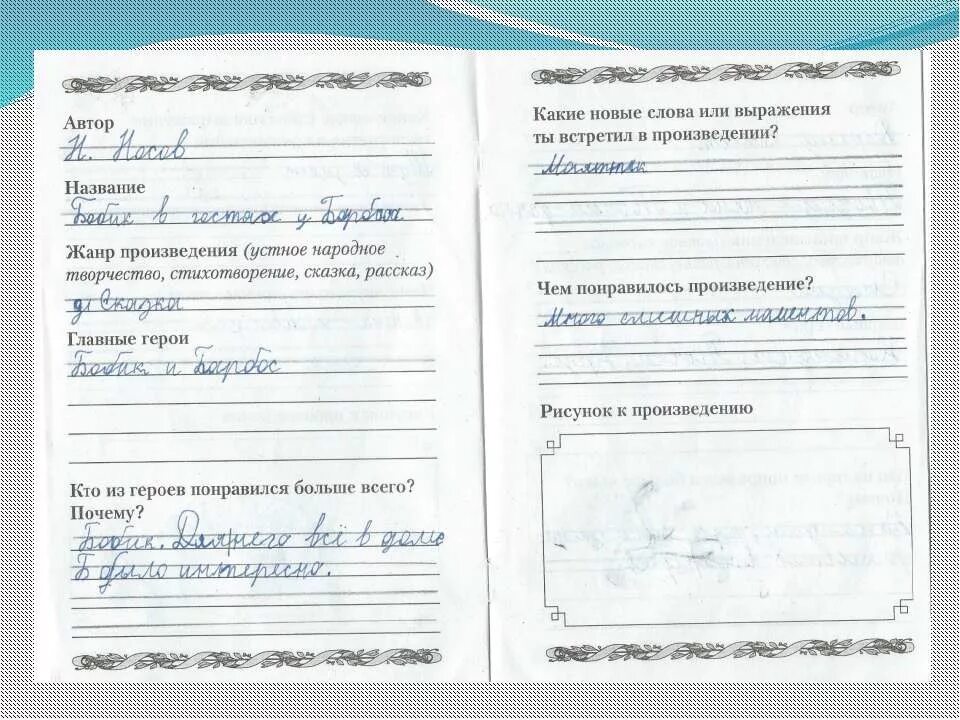 Автор
Н. Носов
Название
Бобик в гостях у Барбоса
Жанр произведения (устное народное
творчество, стихотворение, сказка, рассказ)
Сказка
Главные герои
Бобик и Барбос
Кто из героев понравился больше всего?
Почему?
Бобик. Для него всё в доме
было интересно.
Какие новые слова или выражения
ты встретил в произведении?
Маятник
Чем понравилось произведение?
Много смешных маментов.
Рисунок к произведению